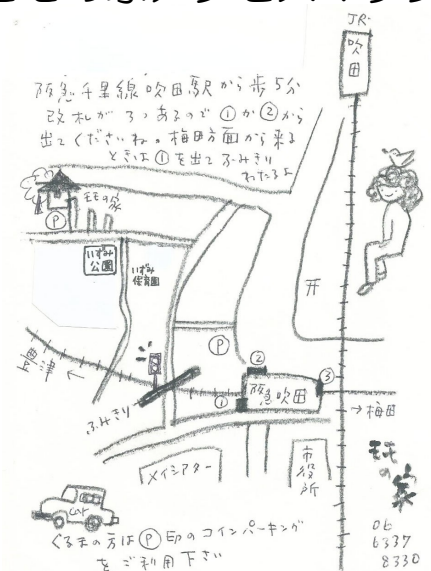 JR.
吹田
阪急千里線吹田駅から歩5分
改札が3つあるので①か②から
出てくださいね。梅田方面から来る
ときは①を出てふみきり
わたるよ
ももの家
P
いずみ公園
いずみ保育園
P
豊津
←
ふみきり
①
②
③
阪急吹田
→梅田
メイシアター
市役所
ももの家
06
6337
8330
car
くるまの方はⓅ印のコインパーキング
をご利用下さい